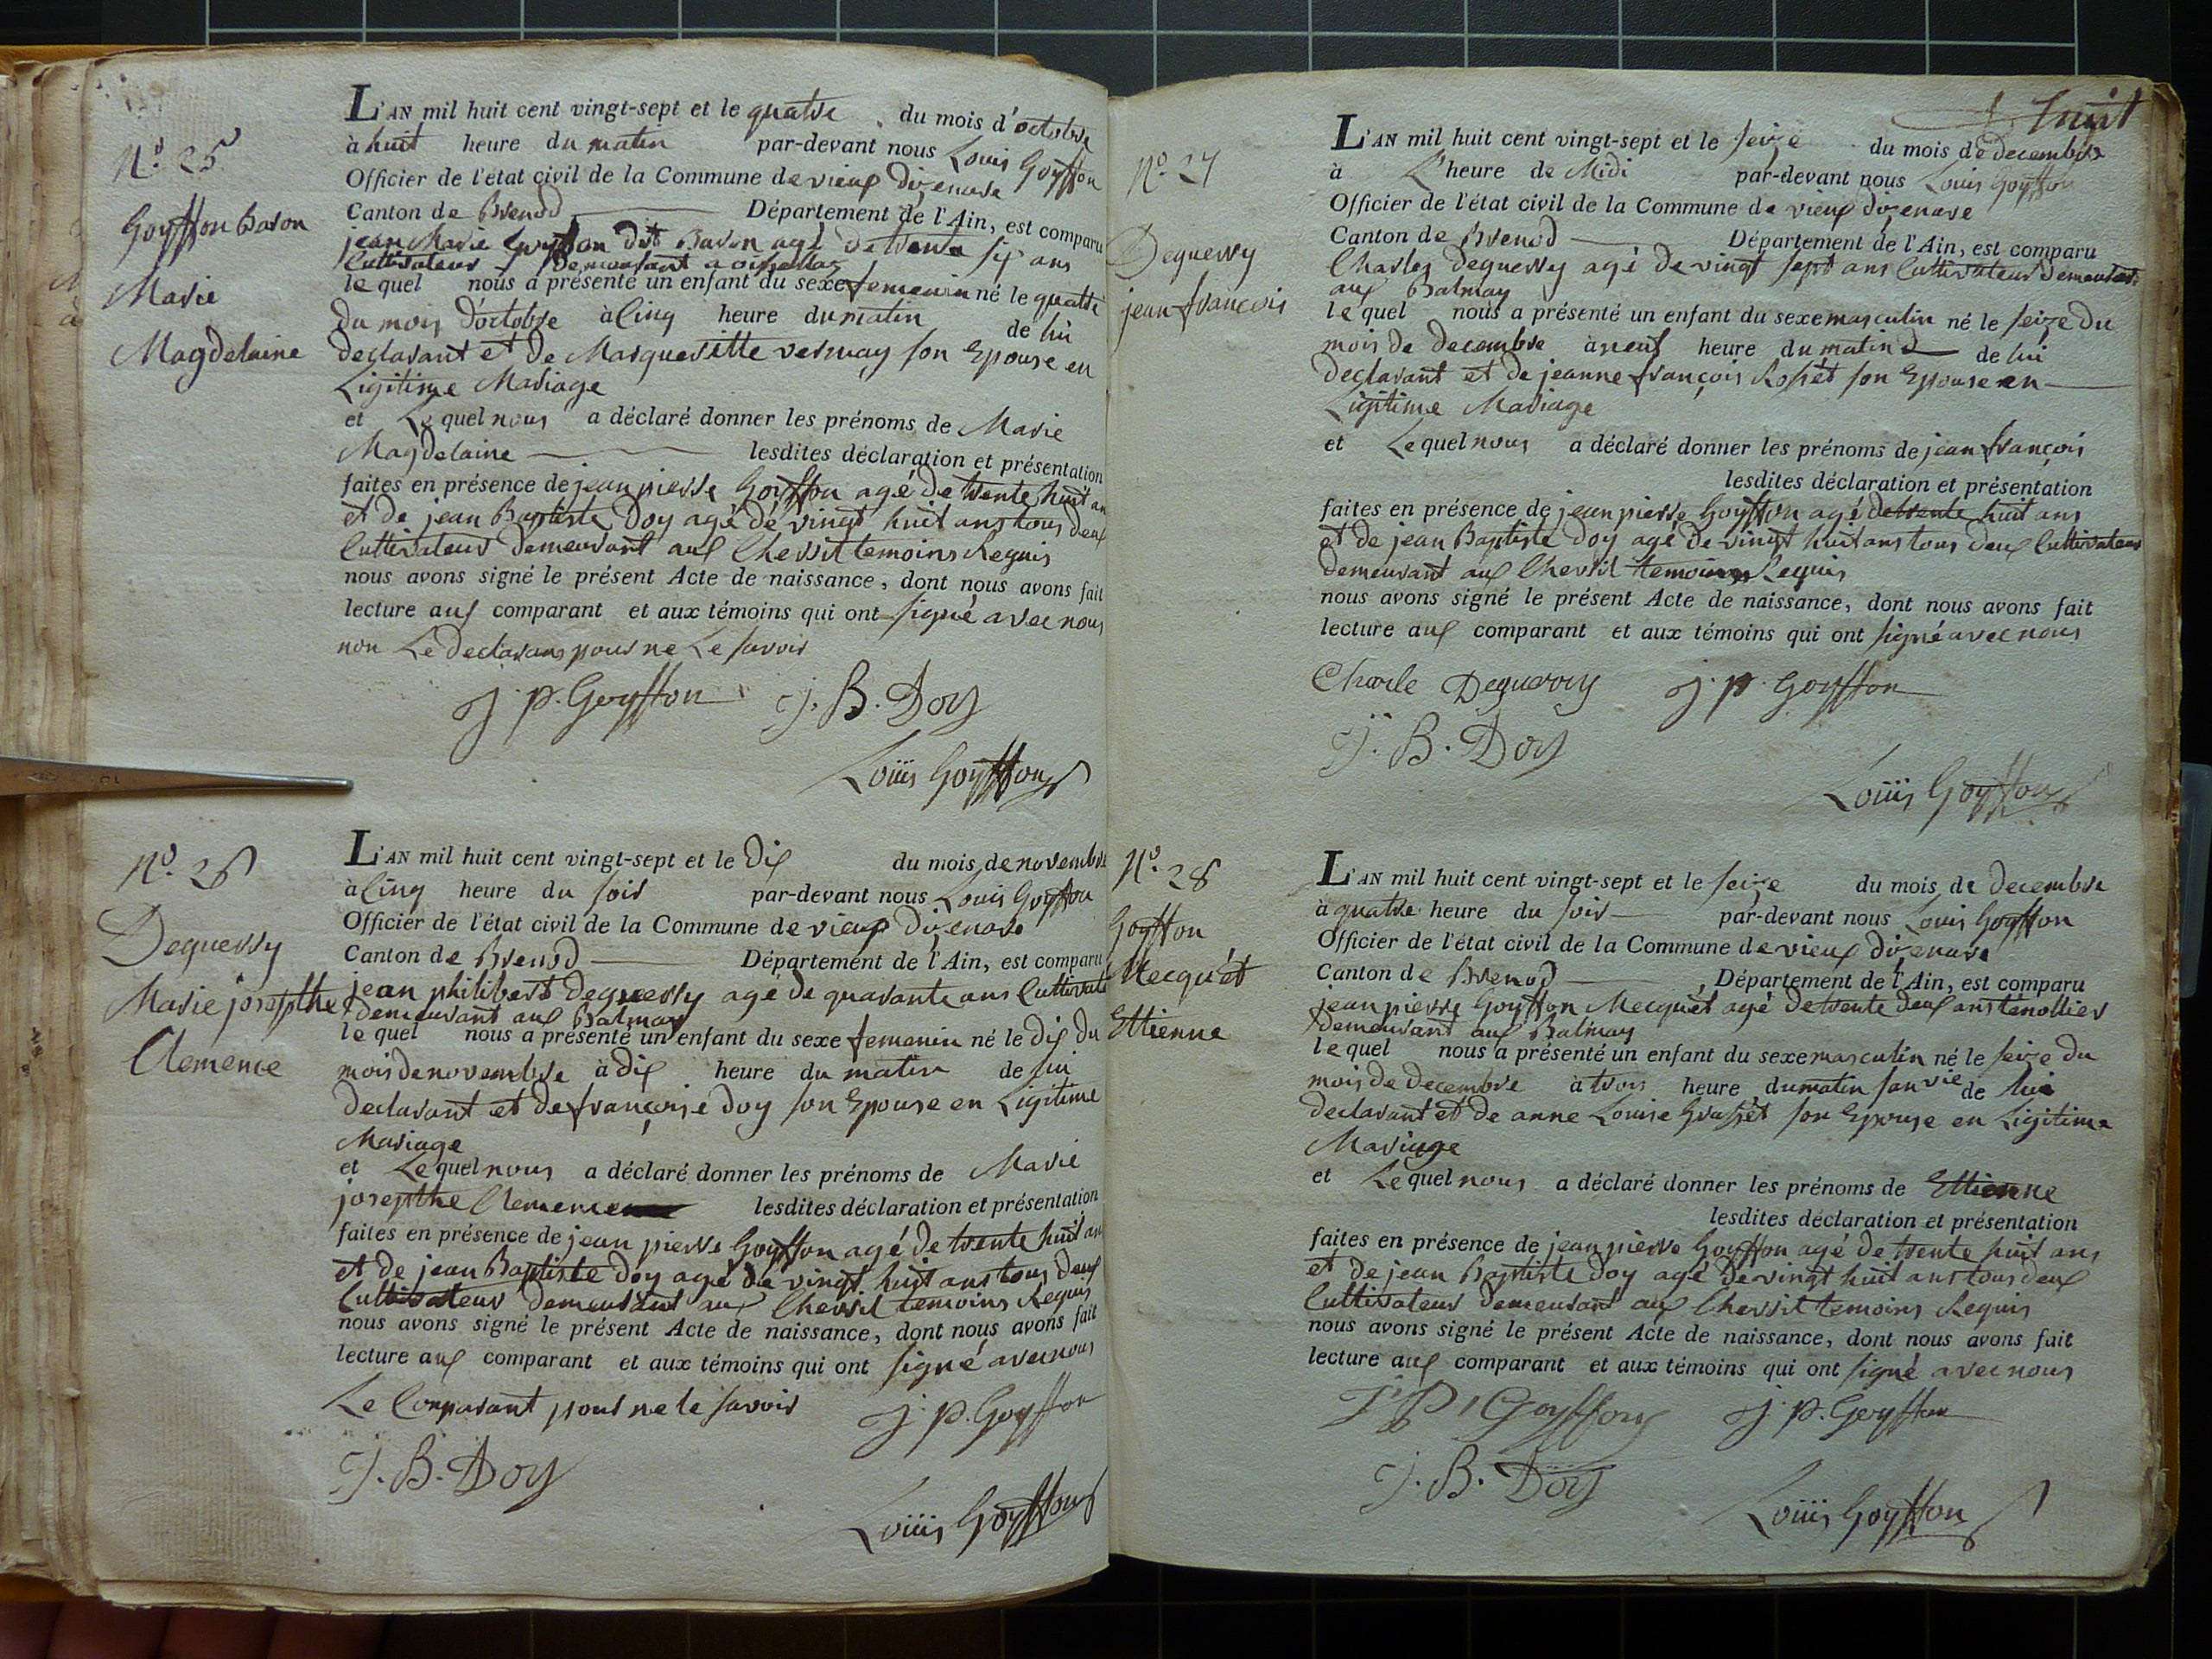 N.º 25
Goyffon Baron
Marie
Magdelaine
L'AN mil huit cent vingt-sept et le quatre du mois d'octobre
à huit heure du matin par-devant nous Louis Goyffon
Officier de l'état civil de la Commune de vieux dizenave
Canton de Brenod Département de l'Ain, est comparu
jean Marie Goyffon dit Baron agé de trente six ans
Cultivateur demeurant a
le quel nous a présenté un enfant du sexe femenin né le quatre
du mois d'octobre à Cinq heure du matin de lui
declarant et de Margueritte vernay son Epouse en
Ligitime Mariage
et Lequel nous a déclaré donner les prénoms de Marie
Magdelaine lesdites déclaration et présentation
faites en présence de jean pierre Goyffon agé de trente huit an
et de jean Baptiste Doy agé de vingt huit ans tous deux
Cultivateur demeurant aux Chevril temoins Requis
nous avons signé le présent Acte de naissance, dont nous avons fait
lecture aux comparant et aux témoins qui ont signé avec nous
non Le declarans pour ne Le savoir
j. p. Goyffon J. B. Doy
Loüis Goyffon
N.º 26
Deguerry
Marie josepthe
Clemence
L'AN mil huit cent vingt-sept et le Dix du mois de novembre
à Cinq heure du soir par-devant nous Louis Goyffon
Officier de l'état civil de la Commune de vieux dizenave
Canton de Brenod Département de l'Ain, est comparu
jean philibert Deguerry agé de quarante ans Cultivate
demeurant aux Balmay
le quel nous a présenté un enfant du sexe femenin né le dix du
mois de novembre à dix heure du matin de lui
declarant et de françoise doy son Epouse en Ligitime
Mariage
et Lequel nous a déclaré donner les prénoms de Marie
josepthe Clemence lesdites déclaration et présentation
faites en présence de jean pierre Goyffon agé de trente huit an
et de jean Baptiste doy agé de vingt huit ans tous deux
Cultivateur demeurant aux Chevril temoins Requis
nous avons signé le présent Acte de naissance, dont nous avons fait
lecture aux comparant et aux témoins qui ont signé avec nous
Le Comparant pour ne le savoir j. p. Goyffon
J. B. Doy
Loüis Goyffon
huit
N.º 27
Deguerry
jean françois
L'AN mil huit cent vingt-sept et le seize du mois de decembre
à L'heure de Midi par-devant nous Louis Goyffon
Officier de l'état civil de la Commune de vieux dizenave
Canton de Brenod Département de l'Ain, est comparu
Charles deguerry agé de vingt sept ans Cultivateur demeurant
aux Balmay
le quel nous a présenté un enfant du sexe masculin né le seize du
mois de decembre à neuf heure du matin de lui
declarant et de jeanne françois Rosset son Epouse en
Ligitime Mariage
et Lequel nous a déclaré donner les prénoms de jean françois
lesdites déclaration et présentation
faites en présence de jean pierre Goyffon agé de trente huit ans
et de jean Baptiste doy agé de vingt huit ans tous deux Cultivateur
demeurant aux Chevril temoins Requis
nous avons signé le présent Acte de naissance, dont nous avons fait
lecture aux comparant et aux témoins qui ont signé avec nous
Charle Deguerry j. p. Goyffon
J. B. Doy
Loüis Goyffon
N.º 28
Goyffon
Mecquét
Ettienne
L'AN mil huit cent vingt-sept et le seize du mois de decembre
à quatre heure du soir par-devant nous Louis Goyffon
Officier de l'état civil de la Commune de vieux dizenave
Canton de Brenod Département de l'Ain, est comparu
jean pierre Goyffon Mecquet agé de trente deux ans tenollier
demeurant aux Balmay
le quel nous a présenté un enfant du sexe masculin né le seize du
mois de decembre à trois heure du matin san vie de lui
declarant et de anne Louise Grasset son Epouse en Ligitime
Mariage
et Lequel nous a déclaré donner les prénoms de Ettienne
lesdites déclaration et présentation
faites en présence de jean pierre Goyffon agé de trente huit ans
et de jean Baptiste doy agé de vingt huit ans tous deux
Cultivateur demeurant aux Chevril temoins Requis
nous avons signé le présent Acte de naissance, dont nous avons fait
lecture aux comparant et aux témoins qui ont signé avec nous
J P Goyffon j. p. Goyffon
J. B. Doy
Loüis Goyffon